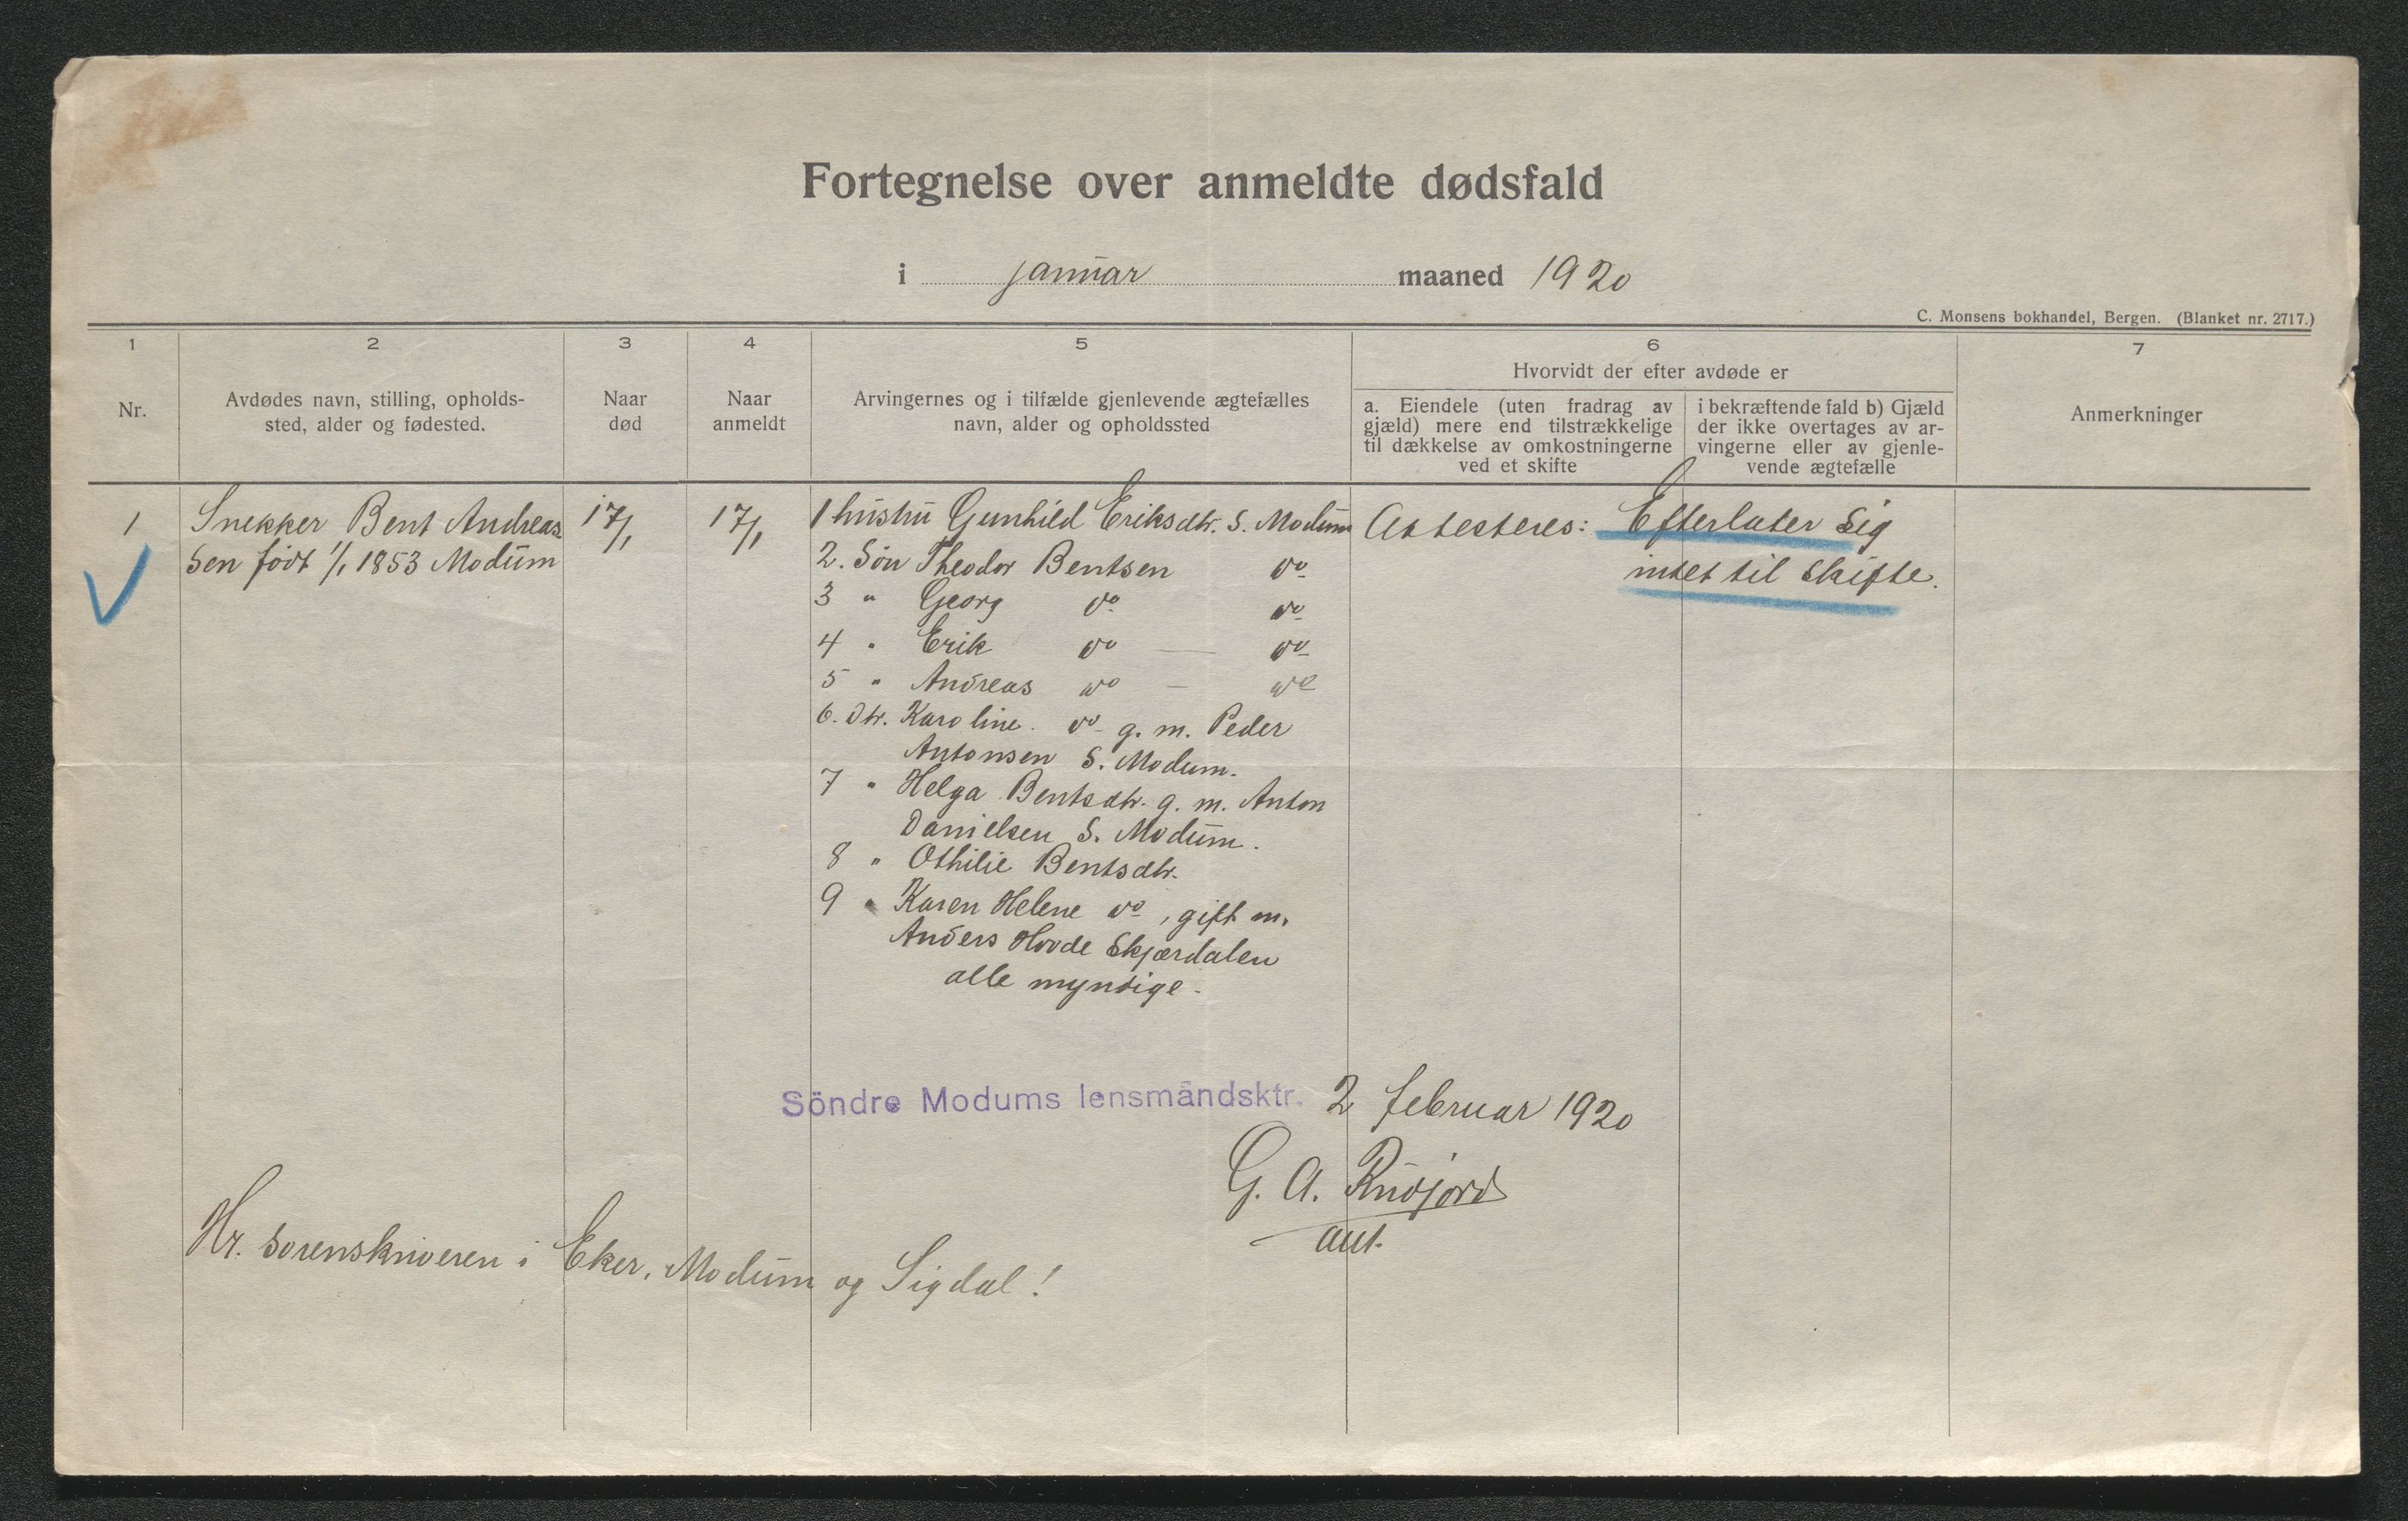 Fortegnelse over anmeldte dødsfald
i januar maaned 1920
C. Monsens bokhandel, Bergen. (Blanket nr. 2717.)
1 2 3 4 5 6 7
Nr.
Avdødes navn, stilling, opholds-
sted, alder og fødested.
Naar
død
Naar
anmeldt
Arvingernes og i tilfælde gjenlevende ægtefælles
navn, alder og opholdssted
Hvorvidt der efter avdøde er
a. Eiendele (uten fradrag av
gjæld) mere end tilstrækkelige
til dækkelse av omkostningerne
ved et skifte
i bekræftende fald b) Gjæld
der ikke overtages av ar-
vingerne eller av gjenle-
vende ægtefælle
Anmerkninger
1 Snekker Bent Andreas-
sen født 1/1 1853 Modum
17/1
17/1
1 hustru Gunhild Eriksdtr. S. Modum
2. Søn Theodor Bentsen do
3 " Georg do do
4 " Erik do — do
5 " Andreas do — do
6. Dtr. Karoline do g. m. Peder
Antonsen S. Modum.
7 " Helga Bentsdtr. g. m. Anton
Danielsen S. Modum.
8 " Othilie Bentsdtr.
9 " Karen Helene do, gift m.
Anders Hovde Skjærdalen
alle myndige.
Attesteres: Efterlater sig
intet til skifte.
Söndre Modums lensmändsktr. 2 februar 1920
G. A. Rudjord
aut.
Hr. Sorenskriveren i Eker, Modum og Sigdal!